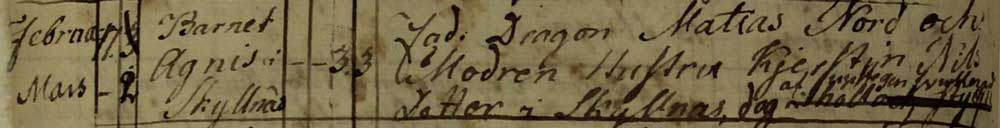 Februar Barnet - - 3.3 Fad: Dragon Matias Nord och
Mars - 2 Agnis i Modren Hustru Kjerstin Nils
Skyllnäs Dotter i Skyllnäs, dog af